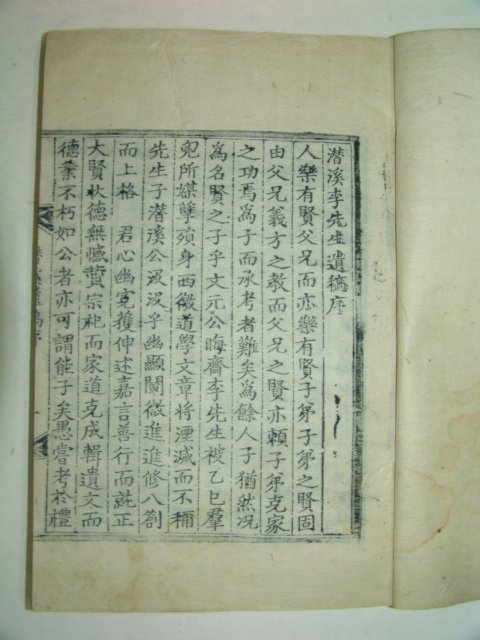 潛溪李先生遺稿序
人樂有賢父兄而亦樂有賢子弟子弟之賢固
由父兄義方之教而父兄之賢亦賴子弟克家
之功焉爲子而承考者難矣爲餘人子猶然况
爲名賢之子乎文元公晦齋李先生被乙巳羣
兇所媒孽殞身西徼道學文章將湮滅而不稱
先生子潛溪公汲汲乎幽顯闡微進進修八劄
而上格 君心幽寃獲伸述嘉言善行而就正
大賢狀德無憾贊宗祀而家道克成輯遺文而
德業不朽如公者亦可謂能子矣愚嘗考於禮